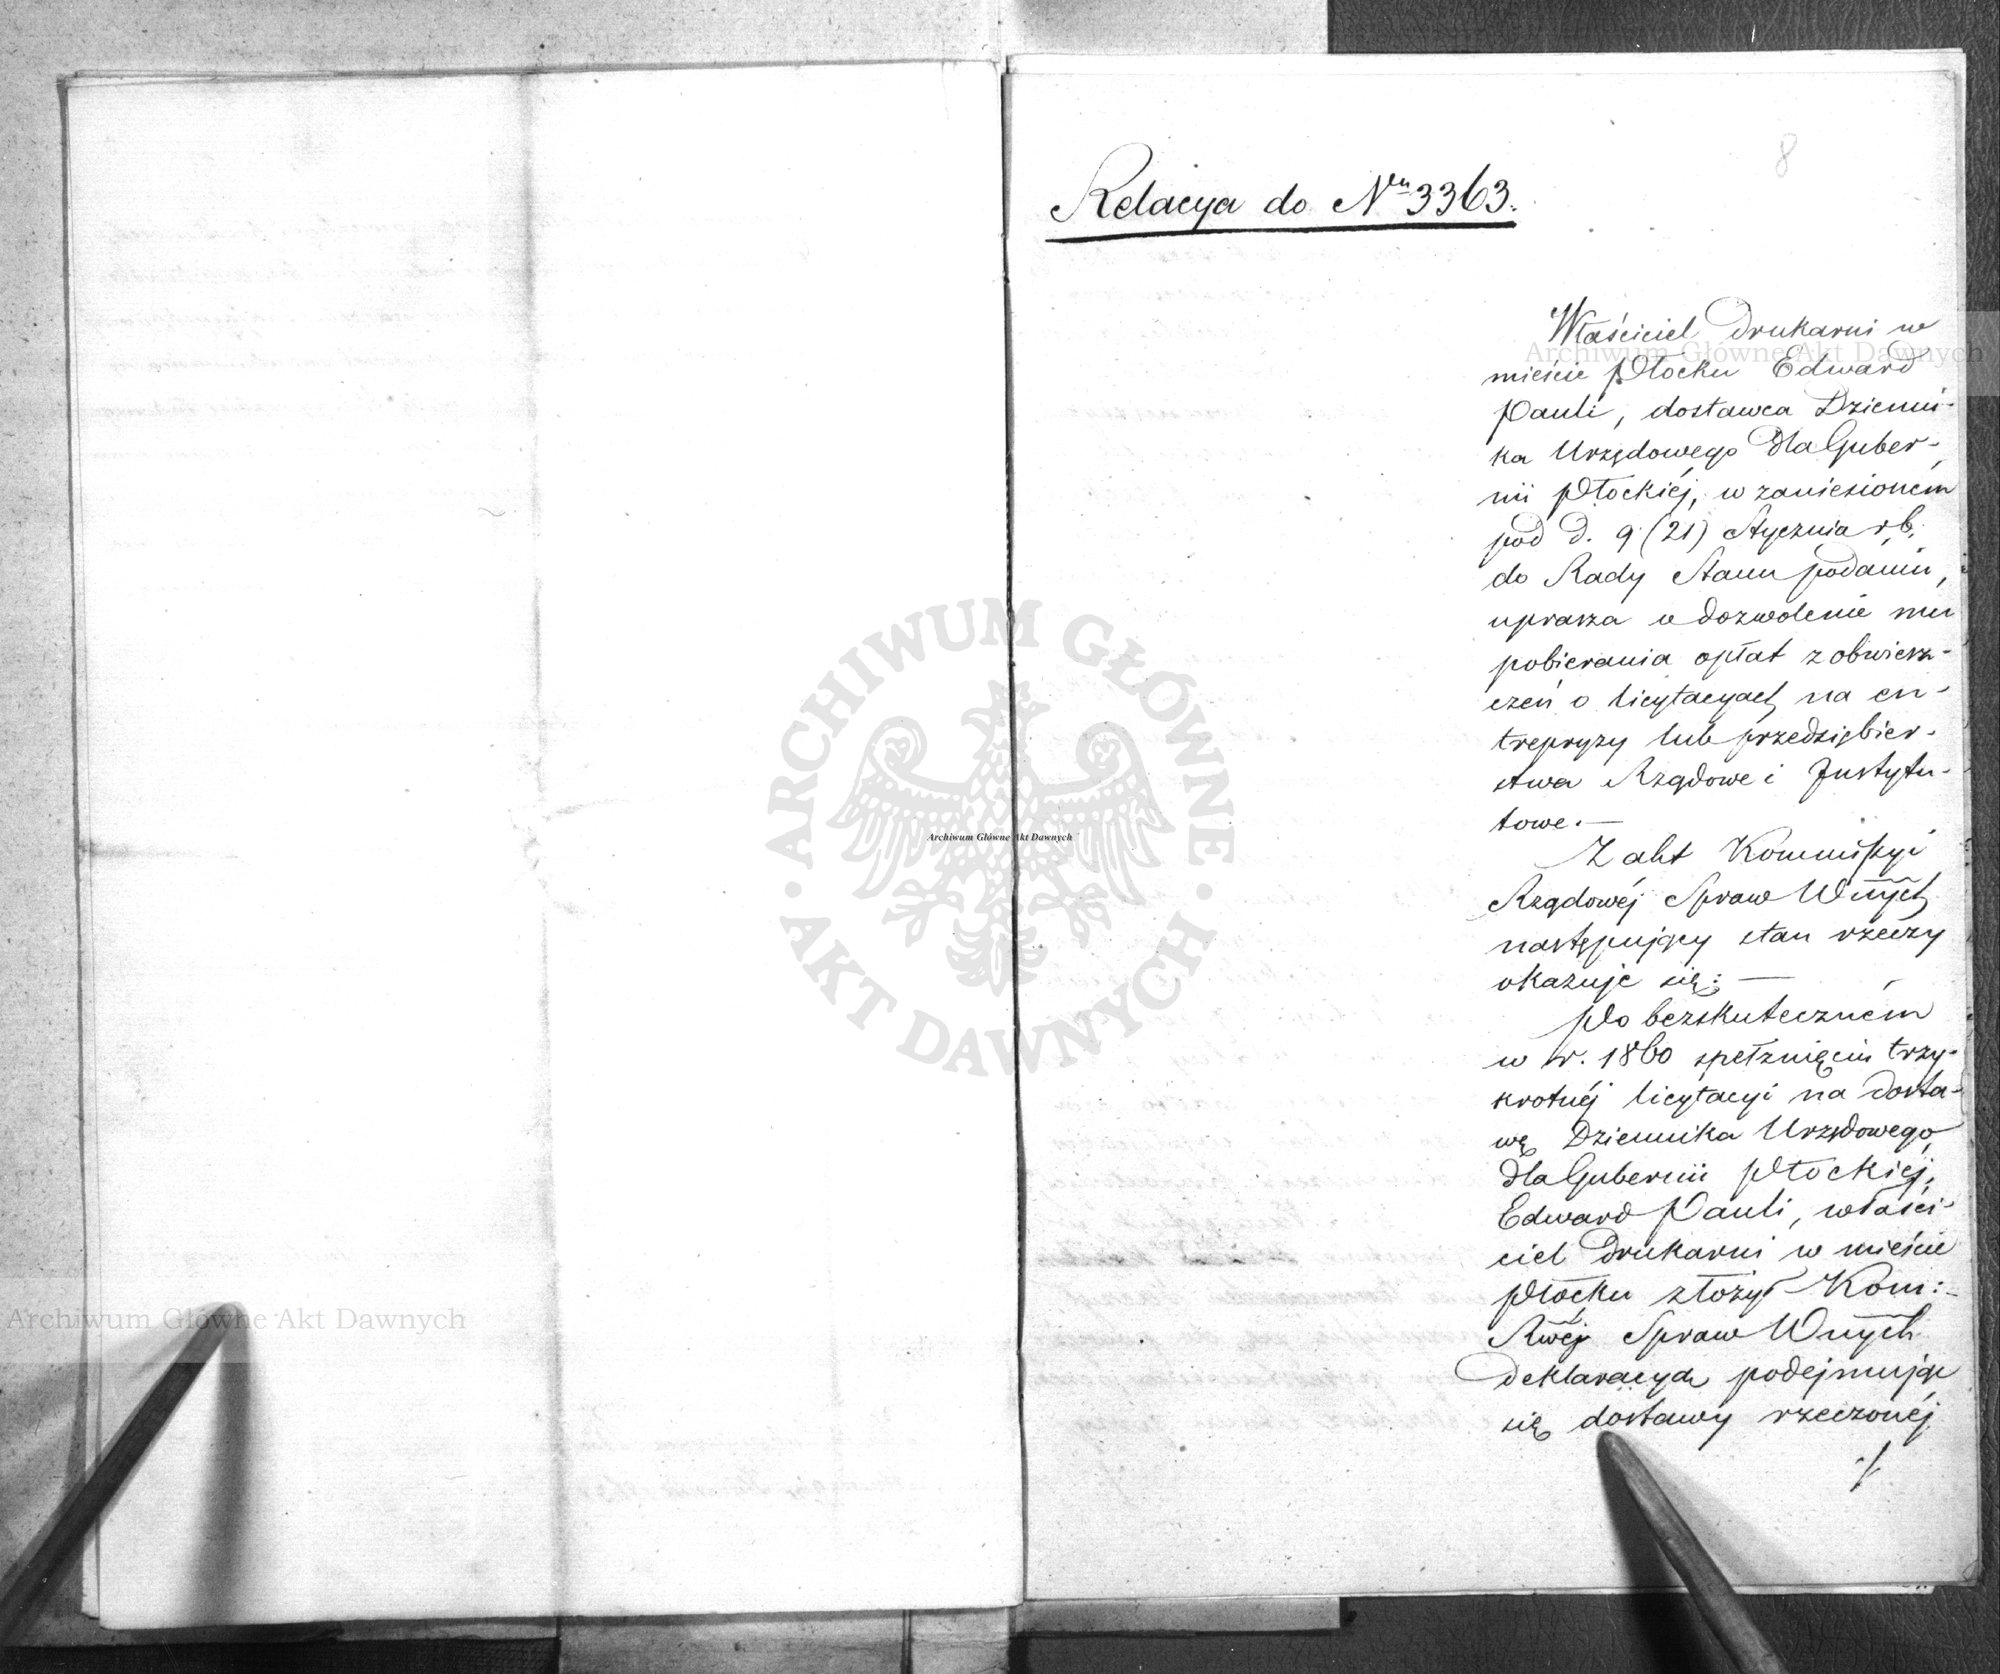 8
Relacya do Nru 3363.
Właściciel Drukarni w
mieście Płocku Edward
Pauli, dostawca Dzienni-
ka Urzędowego dla Guber-
nii Płockiéj, w zaniesioném
pod d. 9 (21) Stycznia r.b.
do Rady Stanu podaniu,
uprasza o dozwolenie mu
pobierania opłat z obwiesz-
czeń o licytacyach na en-
trepryzy lub przedsiębier-
stwa Rządowe i Instytu-
towe.—
Z akt Kommissyi
Rządowéj Spraw Wnych
następujący stan rzeczy
okazuje się: —
Po bezskuteczném
w r. 1860 spełznięciu trzy-
krotnéj licytacyi na dosta-
wę Dziennika Urzędowego,
dla Gubernii Płockiéj,
Edward Pauli, właści-
ciel Drukarni w mieście
Płocku złożył Kom:
Rwéj Spraw Wnych
deklaracyą podejmując
się dostawy rzeczonéj
./.
Archiwum Główne Akt Dawnych
Archiwum Główne Akt Dawnych
Archiwum Główne Akt Dawnych
ARCHIWUM GŁÓWNE
· AKT DAWNYCH ·